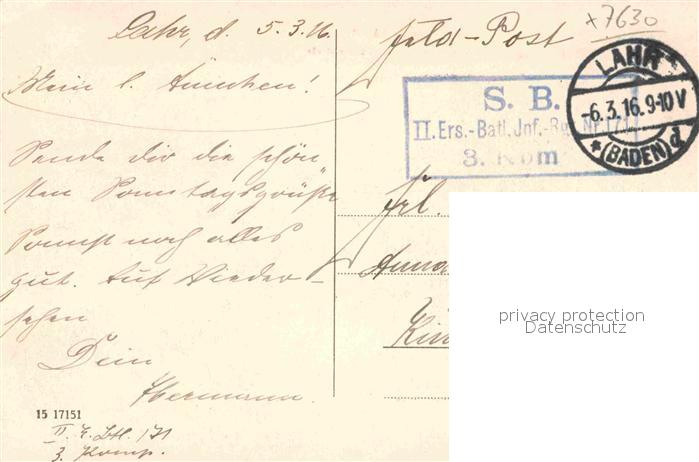 Lahr, d. 5.3.16.
Mein l. Ännchen!
Sende dir die schön
sten Sonntagsgrüße
Sonst noch alles
gut. Auf Wieder-
sehen
Dein
Hermann.
15 17151
II. E. Btl. 171
3. Komp.
x7630
Feld-Post
S. B.
II. Ers.-Batl. Inf.-Rgt. Nr. 171
3. Kom
LAHR
-6.3.16.9-10V
*(BADEN)d
Frl.
Anna
privacy protection
Datenschutz